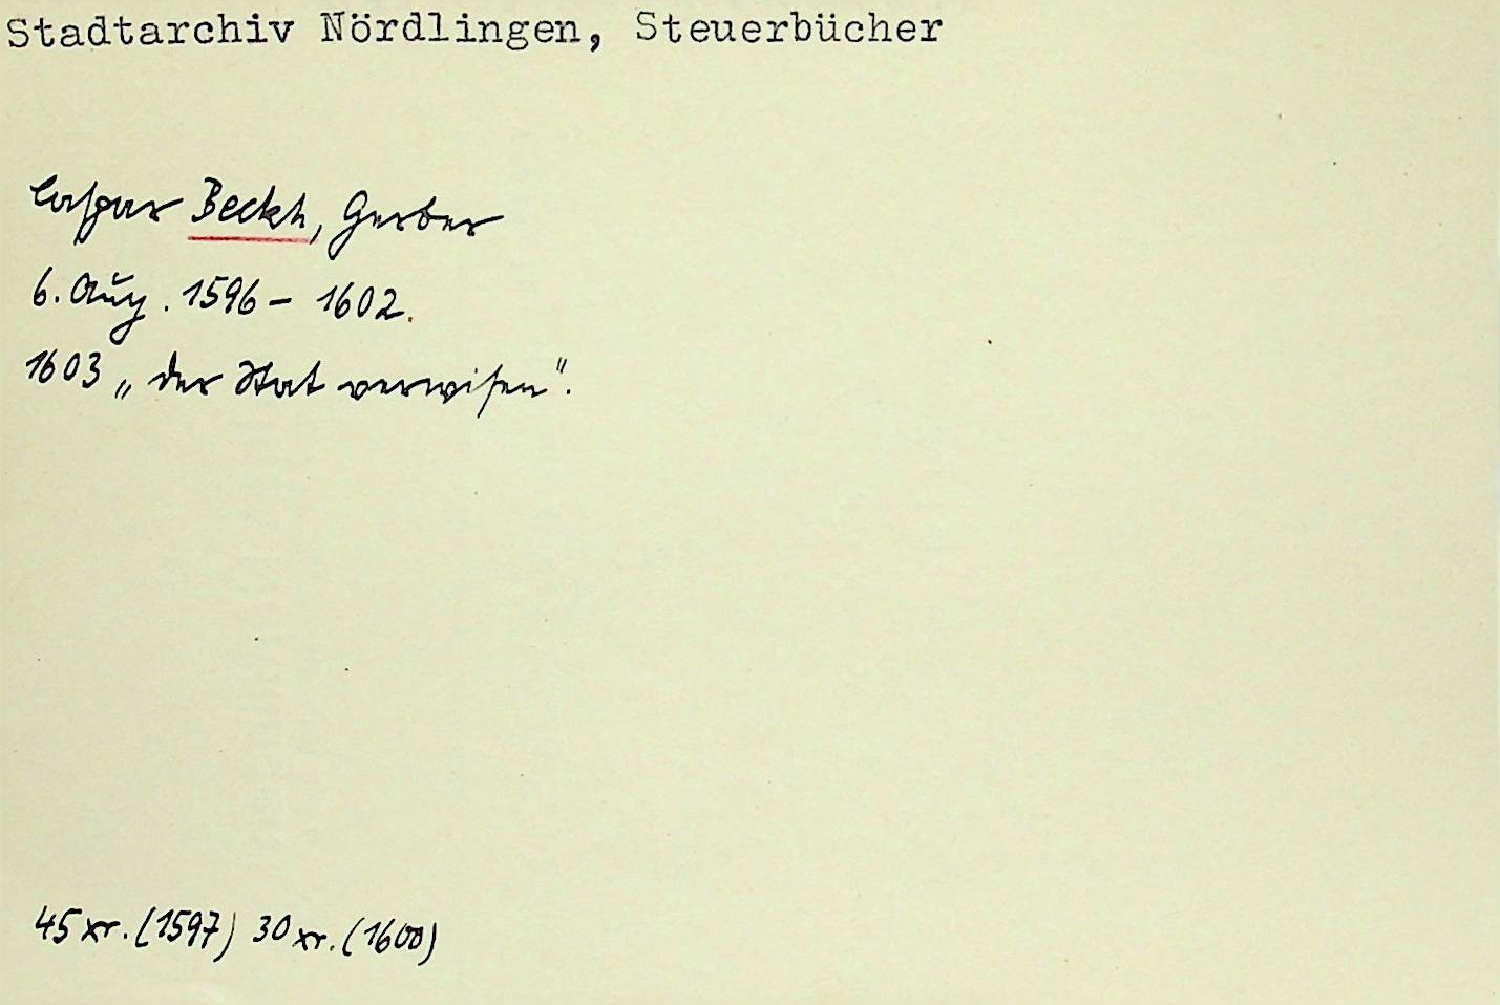 Stadtarchiv Nördlingen, Steuerbücher
Caspar Beckh, Gerber
6. Aug. 1596 – 1602.
1603 „der Stat verwisen".
45 xr. (1597) 30 xr. (1600)